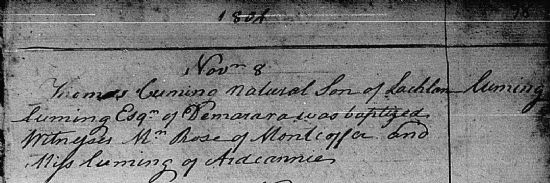 1801
Novr 8
Thomas Cuming Natural Son of Lachlan Cuming
Cuming Esqr of Demarara was baptized
Witnesses Mrs Rose of Montcoffer and
Miss Cuming of Ardcannie